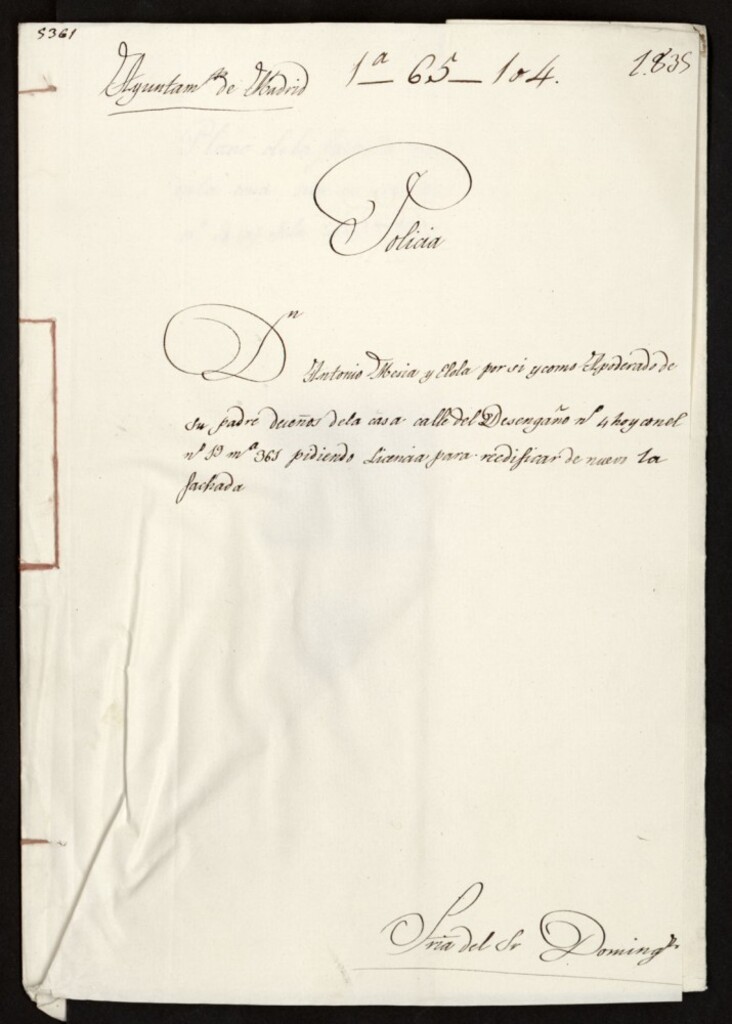 5361
Ayuntam.to de Madrid 1ª 65-104. 1835
Policia
Dn Antonio Mesia y Elola por si y como Apoderado de
su padre dueños dela casa calle del Desengaño nº 4 hoy con el
nº 19 mª 365 pidiendo Licencia para reedificar de nuevo la
fachada
Sria del Sr Doming